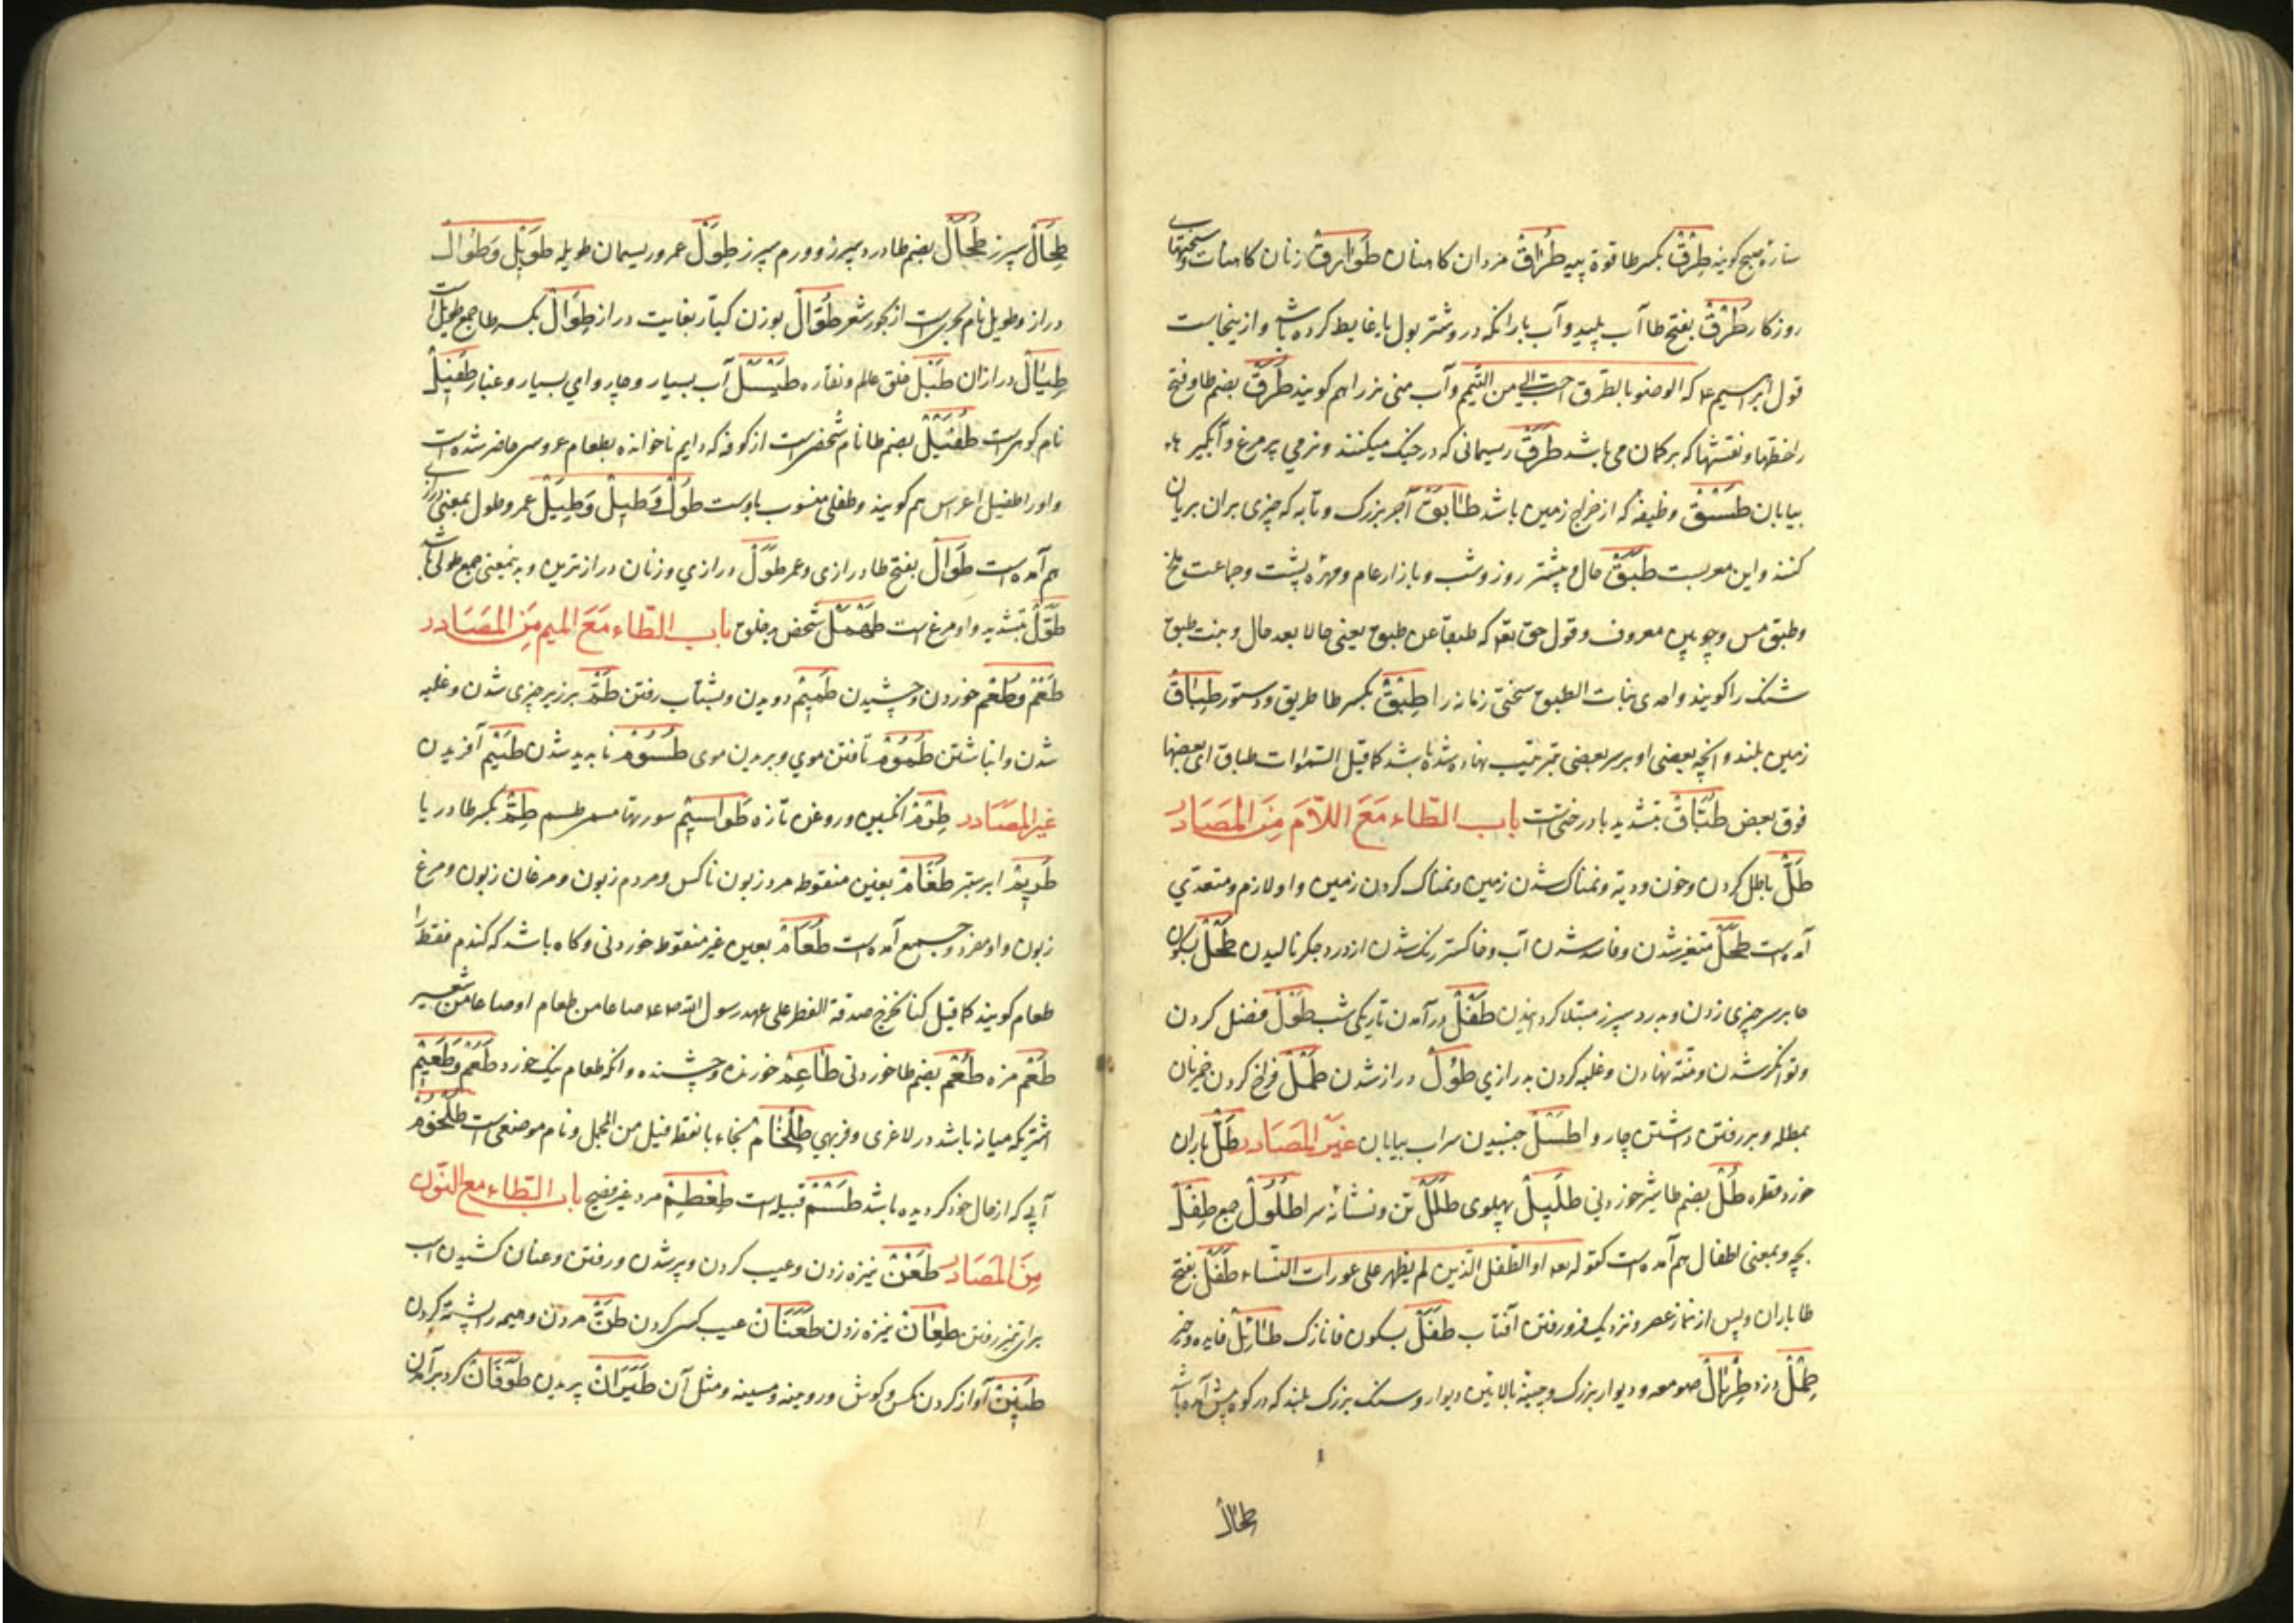 ستارهٔ صبح کویند طِرْقٌ بکسر طا قوة پیه طُرّاقٌ مردان کاهنان طَوَارِقٌ زنان کاهنات و سختیهای
روزکار طَرْقٌ بفتح طا آب پلید و آب بارانکه درو شتر بول یا غایط کرده باشد و ازینجاست
قول ابراهیم که الوضو بالطَرق احبّ الیّ من التیمم و آب منی نر را هم کویند طُرَقٌ بضم طا و فتح
را خطها و نقشها که بر کمان می باشد طَرَقٌ ریسمانی که در جنک میکنند و نرمی پر مرغ و آبگیرها
بیابان طَسْقٌ وظیفه که از خراج زمین باشد طَابَقٌ آجر بزرک و تابه که چیزی بران بریان
کنند و این معربست طَبَقٌ حال و پیشتر روز و شب و بازار عام و مهره پشت و جماعت ملخ
و طبق مس و چوبین معروف و قول حق تعا که طبقا عن طبق یعنی حالا بعد حال و بنت طبق
سنک را کویند واحدی بنات الطبق سختی زمانه را طِبْقٌ بکسر طا طریق و دستور طِبَاقٌ
زمین بلند و آنچه بعضی او بر سر بعضی بترتیب نهاده شده باشد کما قیل السّموات طباق ای بعضها
فوق بعض طُبَّاقٌ بتشدید با درختی است باب الطّاء مَعَ اللّامَ مِنَ المَصَادِر
طَلٌّ باطل کردن و خون و دیة و نمناک شدن زمین و نمناک کردن زمین و او لازم و متعدّی
آمده است طَحَلٌ متغیر شدن و فاسد شدن آب و خاکستر رنک شدن از درد جکر نالیدن طَحْلٌ بسکون
حا بر سر چیزی زدن و بدرد سپرز مبتلا کردانیدن طَفَلٌ در آمدن تاریکی شب طَوْلٌ فضل کردن
و توانکر شدن و منّة نهادن و غلبه کردن بدرازی طُوْلٌ دراز شدن طَمْلٌ فراخ کردن خمیر نان
بمطله و بر رفتن داشتن چاروا طَسْلٌ جنبیدن سراب بیابان غَیْرُ المَصَادِر طَلٌّ باران
خورد قطره طُلٌّ بضم طا شیر خوردنی طَلِیلٌ پهلوی طَلَلٌ تن و نشانهٔ سرا طُلُوْلٌ جمع طِفْلٌ
بچه و بمعنی اطفال هم آمده است کقوله تعا او الطّفل الّذین لم یظهروا علی عورات النّساء طَفَلٌ بفتح
طا باران و پس از نماز عصر و نزدیک فرو رفتن آفتاب طَفْلٌ بسکون فا نازک طَائِلٌ فایده و خیر
طِمْلٌ دزد طِرْبَالٌ صومعه و دیوار بزرک و چینهٔ بالائین دیوار و سنک بزرک بلند که در کوه پیش آمده باشد
طحال
طِحَالٌ سپرز طُحَالٌ بضم طا درد سپرز و ورم سپرز طِوَلٌ عمر و ریسمان طویله طَوِیْلٌ وَطُوَالٌ
دراز و طویل نام بحریست از بحور شعر طُوَّالٌ بوزن کبّار بغایت دراز طِوَالٌ بکسر طا جمع طویل است
طِیَالٌ درازان طَبْلٌ خلق عالم و نقاره طَیْسَلٌ آب بسیار و چاروای بسیار و غبار طُفَیْلٌ
نام کوهیست طُفَیْلٌ بضم طا نام شخصیست از کوفه که دایم ناخوانده بطعام عروسی حاضر شده است
و او را طفیل اعراس هم کویند و طفلی منسوب باوست طُوَلٌ وَطِیَلٌ وَطِیْلٌ عمر و طول بمعنی دراز
هم آمده است طَوَالٌ بفتح طا درازی و عمر طُوَلٌ درازی و زنان درازترین و بدینمعنی جمع طولی باشد
طُوَّلٌ بتشدید واو مرغ است طَهْمَلٌ شخص بدخلق باب الطّاء مَعَ المیم مِنَ المَصَادِر
طَعْمٌ وَطُعْمٌ خوردن و چشیدن طَمِیْمٌ دویدن و بشتاب رفتن طَمٌّ بر زبر چیزی شدن و غلبه
شدن و انباشتن طُمُوْمٌ تافتن موی و بریدن موی طُسُوْمٌ ناپدید شدن طَیْمٌ آفریدن
غیر المصَادر طِرْمٌ انکبین و روغن تازه طَوَاسِیْمٌ سورتها مسمر طسم طِمٌّ بکسر طا دریا
طِرْیَمٌ ابر ستبر طَغَامٌ بغین منقوطه مرد زبون ناکس و مردم زبون و مرغان زبون و مرغ
زبون و او مفرد و جمع آمده است طَعَامٌ بعین غیر منقوط خوردنی و کاه باشد که کندم فقط را
طعام کویند کما قیل کنا نخرج صدقة الفطر علی عهد رسول الله صاعا من طعام او صاعا من شعیر
طَعْمٌ مزه طُعْمٌ بضم طا خوردنی طَاعِمٌ خورنده و چشنده و آنکه طعام نیک خورد طَعُوْمٌ وَطَعِیْمٌ
اشتریکه میانه باشد در لاغری و فربهی طِلْخَامٌ بخاء با نقطه فیل من المجمل و نام موضعی است طُلْحُوْمٌ
آبی که از حال خود کردیده باشد طَسْمٌ قبیله است طِمْطِمٌ مرد غیر فصیح باب الطّاء مع النّون
مِنَ المَصَادِر طَعْنٌ نیزه زدن و عیب کردن و پر شدن و رفتن و عنان کشیدن اسب
برای تیز رفتن طِعَانٌ نیزه زدن طَعَنَانٌ عیب کسی کردن طَنٌّ مردن و هیمه را پشته کردن
طَنِیْنٌ آواز کردن مکس و کوش و رویینه و مسینه و مثل آن طَیَرَانٌ پریدن طَوَفَانٌ کرد بر آمدن